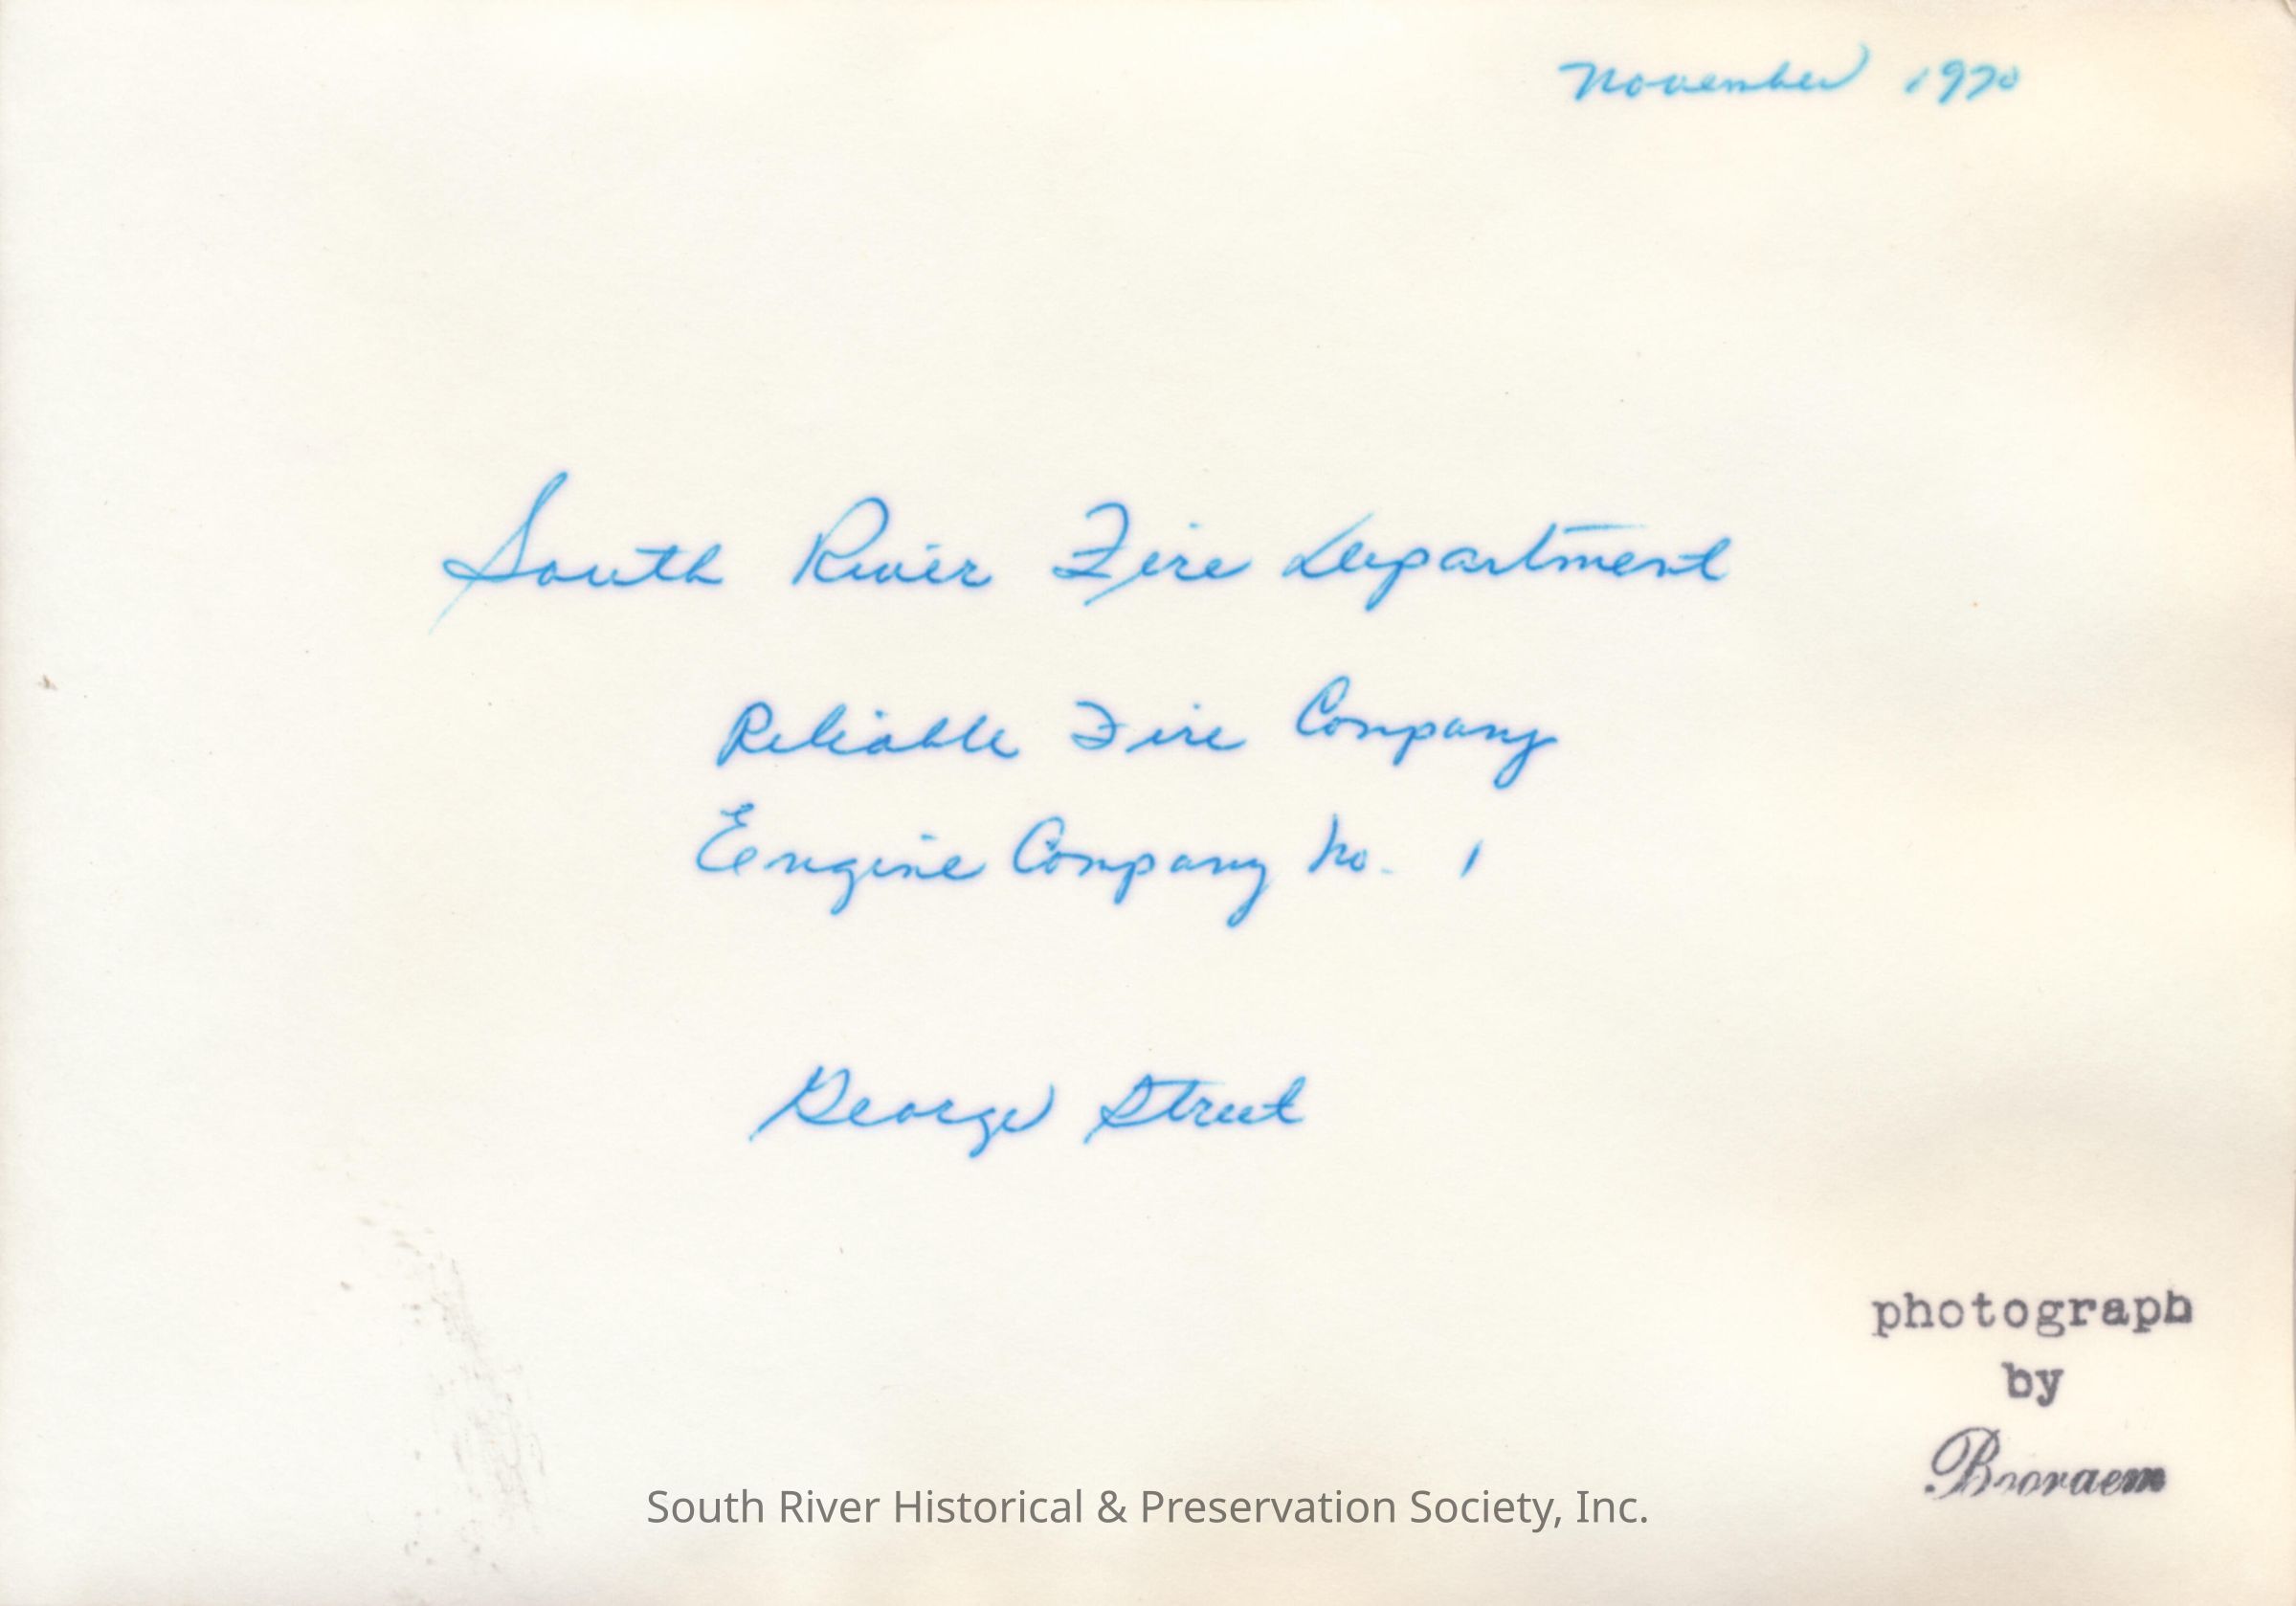 November 1970
South River Fire Department
Reliable Fire Company
Eengine Company No. 1
George Street
photograph
by
Booraem
South River Historical & Preservation Society, Inc.